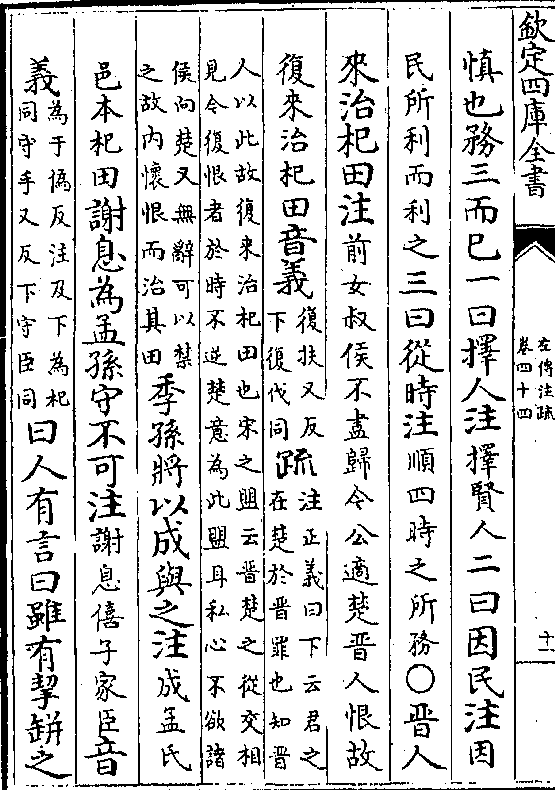 欽定四庫全書
左傳注疏
卷四十四
十一
慎也務三而已一曰擇人注擇賢人二曰因民注因
民所利而利之三曰從時注順四時之所務〇晉人
來治杞田注前女叔侯不盡歸今公適楚晉人恨故
復來治杞田音義復扶又反
下復伐同疏注正義曰下云君之
在楚於晉罪也知晉
人以此故復來治杞田也宋之盟云晉楚之從交相
見令復恨者於時不逆楚意為此盟耳私心不欲諸
侯向楚又無辭可以禁
之故內懷恨而治其田季孫將以成與之注成孟氏
邑本杞田謝息為孟孫守不可注謝息僖子家臣音
義為于偽反注及下為杞
同守手又反下守臣同曰人有言曰雖有挈缾之